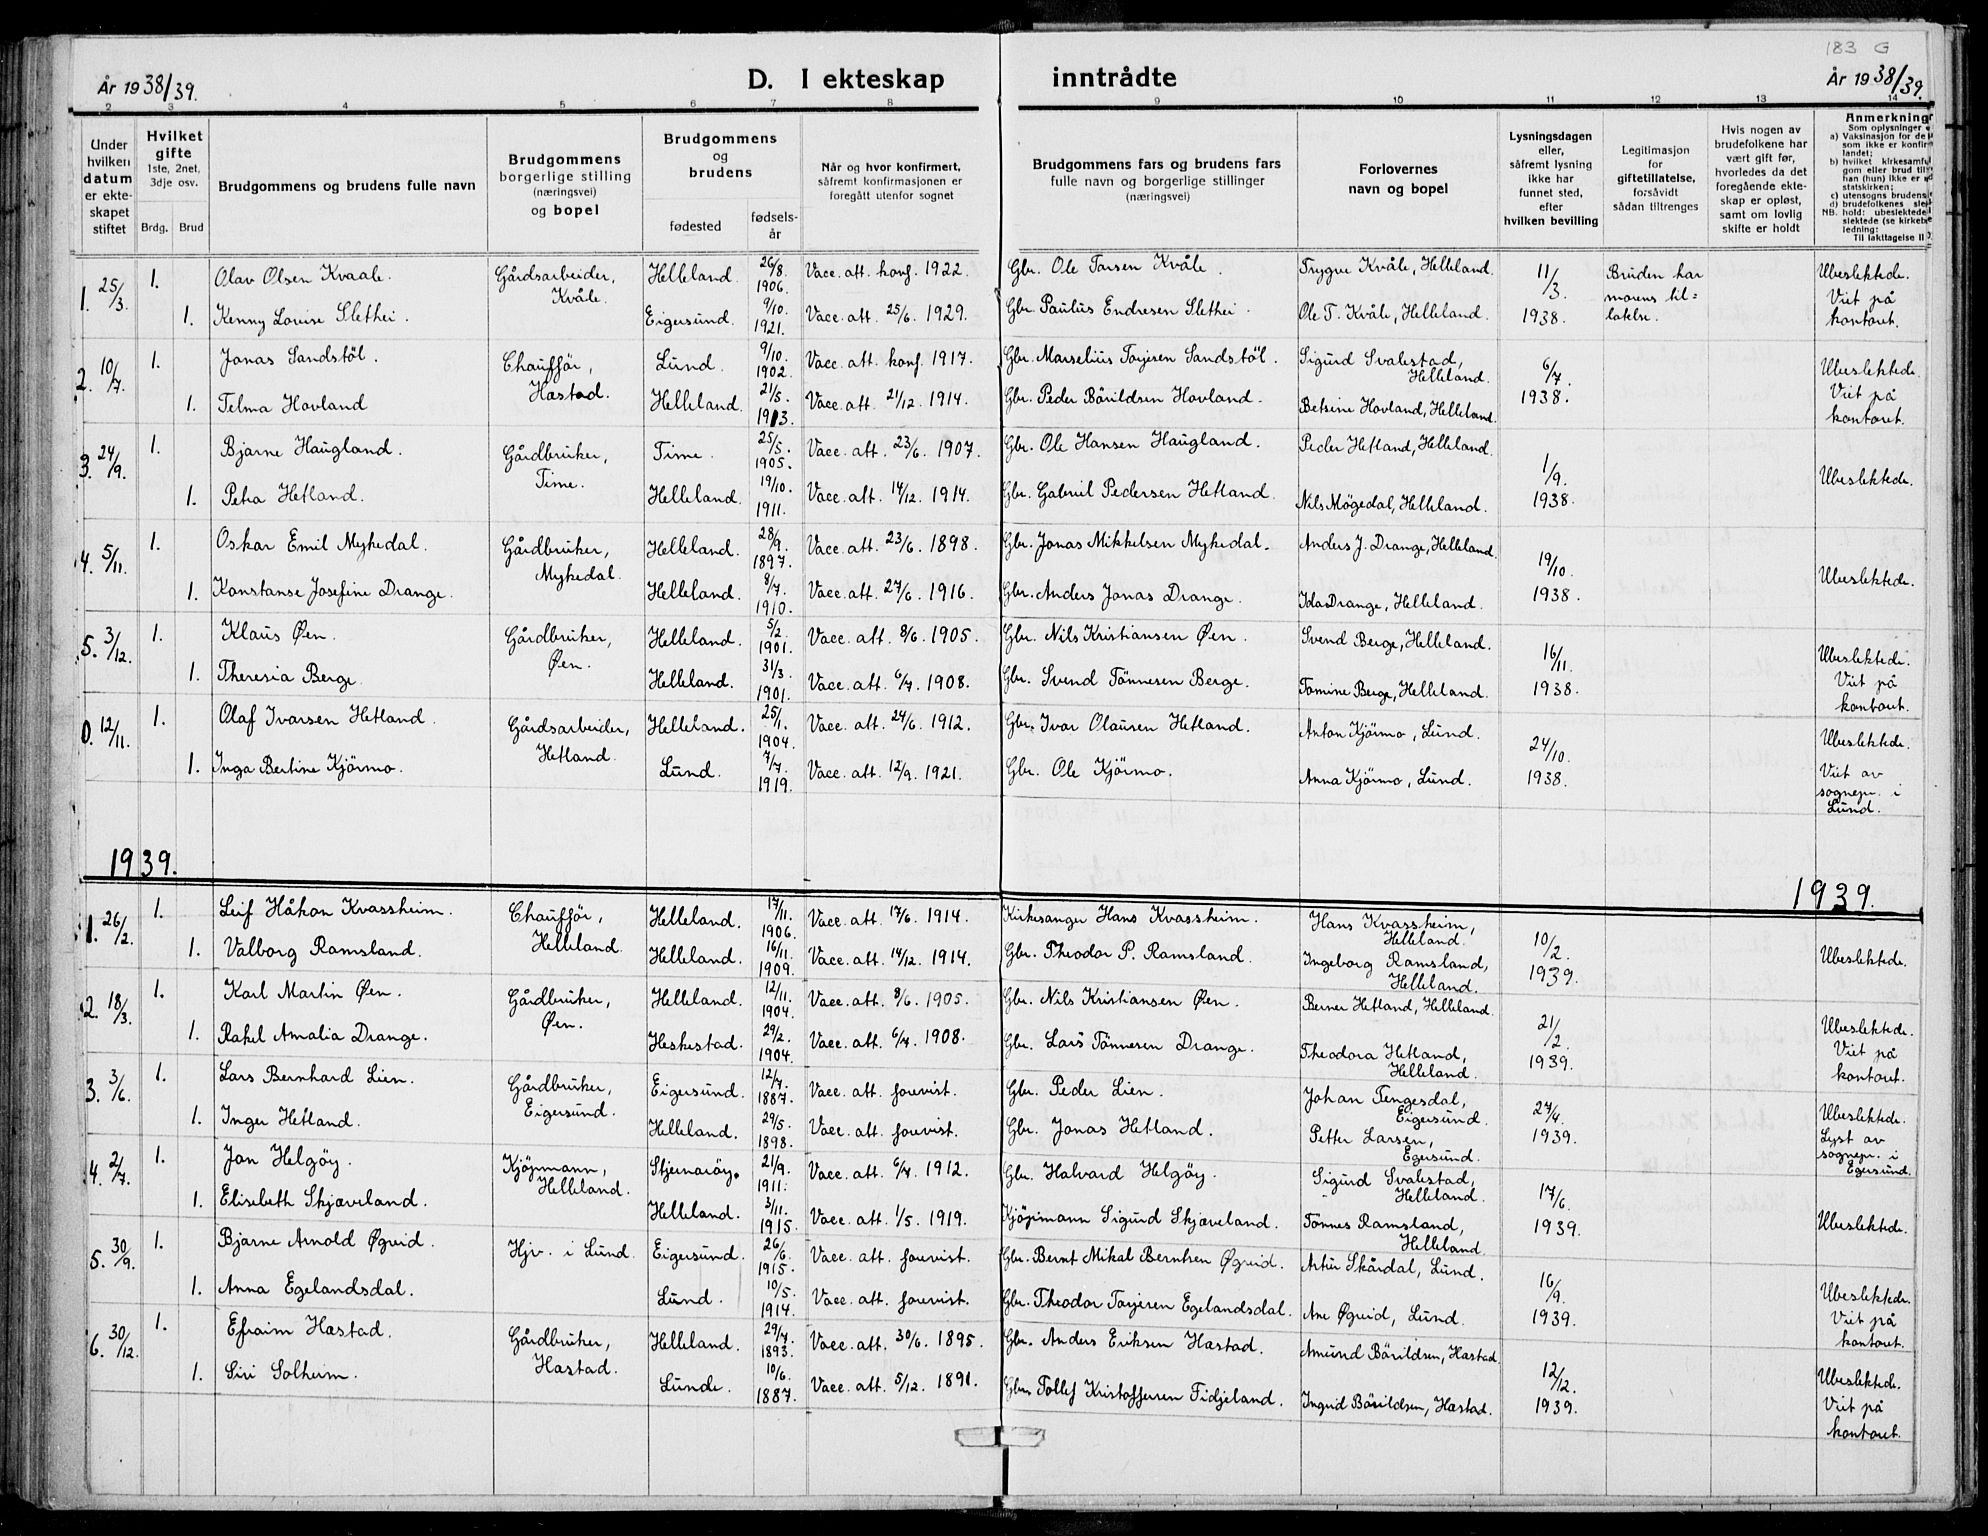 183 G
År 1938/39.
D. I ekteskap
inntrådte
År 1938/39.
2 3 4 5 6 7 8 9 10 11 12 13 14
Under hvilken datum er ekteskapet stiftet
Hvilket gifte
1ste, 2net, 3dje osv.
Brdg. Brud
Brudgommens og brudens fulle navn
Brudgommens borgerlige stilling (næringsvei) og bopel
Brudgommens og brudens
fødested
fødsels-år
Når og hvor konfirmert, såfremt konfirmasjonen er foregått utenfor sognet
Brudgommens fars og brudens fars fulle navn og borgerlige stillinger (næringsvei)
Forlovernes navn og bopel
Lysningsdagen eller, såfremt lysning ikke har funnet sted, efter hvilken bevilling
Legitimasjon for giftetillatelse, forsåvidt sådan tiltrenges
Hvis nogen av brudefolkene har vært gift før, hvorledes da det foregående ekteskap er opløst, samt om lovlig skifte er holdt
Anmerkning
Som oplysninger
a) Vaksinasjon for de
som ikke er konfir
landet;
b) hvilket kirkesamfu
gom eller brud til
han (hun) ikke er
statskirken;
c) utensogns brudens
d) brudefolkenes sle
NB. hold: ubeslektede
slektede (se kirkeb
ledning:
Til iakttagelse II
1. 25/3. 1. Olav Olsen Kvaale. Gårdsarbeider, Kvåle. Helleland. 26/8. 1906. Vacc. att. konf. 1922. Gbr. Ole Tarsen Kvåle. Trygve Kvåle, Helleland. 11/3. 1938. Bruden har morens til=latelse. Ubeslektede. Viet på kontoret.
1. Kenny Louise Slethei. Eigersund. 9/10. 1921. Vacc. att. 25/6. 1929. Gbr. Paulus Endresen Slethei. Ole T. Kvåle, Helleland.
2. 10/7. 1. Jonas Sandstöl. Chauffør, Hæstad. Lund. 9/10. 1902. Vacc. att. konf. 1917. Gbr. Marselius Torjesen Sandstöl. Sigurd Svalestad, Helleland. 6/7. 1938. Ubeslektede. Viet på kontoret.
1. Telma Hovland Helleland. 21/5. 1913. Vacc. att. 21/12. 1914. Gbr. Peder Bårildsen Hovland. Betsine Hovland, Helleland.
3. 24/9. 1. Bjarne Haugland. Gårdbruker, Time. Time. 25/5. 1905. Vacc. att. 23/6. 1907. Gbr. Ole Hansen Haugland. Peder Hetland, Helleland. 1/9. 1938. Ubeslektede.
1. Petra Hetland. Helleland. 19/10. 1911. Vacc. att. 14/12. 1914. Gbr. Gabriel Pedersen Hetland. Nils Mögedal, Helleland.
4. 5/11. 1. Oskar Emil Mykedal. Gårdbruker, Mykedal. Helleland. 28/9. 1897. Vacc. att. 23/6. 1898. Gbr. Jonas Mikkelsen Mykedal. Anders J. Drange, Helleland. 19/10. 1938. Ubeslektede.
1. Konstanse Josefine Drange. Helleland. 8/7. 1910. Vacc. att. 27/6. 1916. Gbr. Anders Jonas Drange. Ida Drange, Helleland.
5. 3/12. 1. Klaus Øen. Gårdbruker, Øen. Helleland. 5/2. 1901. Vacc. att. 8/6. 1905. Gbr. Nils Kristiansen Øen. Svend Berge, Helleland. 16/11. 1938. Ubeslektede. Viet på kontoret.
1. Theresia Berge. Helleland. 31/3. 1901. Vacc. att. 6/7. 1908. Gbr. Svend Tönnesen Berge. Tomine Berge, Helleland.
0. 12/11. 1. Olaf Ivarsen Hetland. Gårdsarbeider, Hetland. Helleland. 25/1. 1904. Vacc. att. 24/6. 1912. Gbr. Ivar Olausen Hetland. Anton Kjörmo, Lund. 24/10. 1938. Ubeslektede. Viet av sognepr. i Lund.
1. Inga Bertine Kjörmo. Lund. 7/7. 1919. Vacc. att. 12/9. 1921. Gbr. Ole Kjörmo. Anna Kjörmo, Lund.
1939. 1939.
1. 26/2. 1. Leif Håkon Kvassheim. Chauffør, Helleland. Helleland. 17/11. 1906. Vacc. att. 17/6. 1914. Kirkesanger Hans Kvassheim. Hans Kvassheim, Helleland. 10/2. 1939. Ubeslektede.
1. Valborg Ramsland. Helleland. 16/11. 1909. Vacc. att. 14/12. 1914. Gbr. Theodor P. Ramsland. Ingeborg Ramsland, Helleland.
2. 18/3. 1. Karl Martin Øen. Gårdbruker, Øen. Helleland. 12/11. 1904. Vacc. att. 8/6. 1905. Gbr. Nils Kristiansen Øen. Berner Hetland, Helleland. 21/2. 1939. Ubeslektede. Viet på kontoret.
1. Rakel Amalia Drange. Heskestad. 29/2. 1904. Vacc. att. 6/7. 1908. Gbr. Lars Tönnesen Drange. Theodora Hetland, Helleland.
3. 3/6. 1. Lars Bernhard Lien. Gårdbruker, Eigersund. Eigersund. 12/7. 1887. Vacc. att. forevist. Gbr. Peder Lien. Johan Tengesdal, Eigersund. 27/4. 1939. Ubeslektede. Lyst av sognepr. i Egersund.
1. Inger Hetland. Helleland. 29/5. 1898. Vacc. att. forevist. Gbr. Jonas Hetland. Petter Larsen, Egersund.
4. 2/7. 1. Jan Helgöy. Kjöpmann, Helleland. Stjernaröy. 21/9. 1911. Vacc. att. 6/7. 1912. Gbr. Halvard Helgöy. Sigurd Svalestad, Helleland. 17/6. 1939. Ubeslektede.
1. Elisebeth Skjæveland. Helleland. 3/11. 1915. Vacc. att. 1/5. 1919. Kjöpmann Sigurd Skjæveland. Tönnes Ramsland, Helleland.
5. 30/9. 1. Bjarne Arnold Øgreid. Hjv. i Lund. Eigersund. 26/6. 1915. Vacc. att. forevist. Gbr. Bernt Mikal Berntsen Øgreid. Artur Skårdal, Lund. 16/9. 1939. Ubeslektede. Viet på kontoret.
1. Anna Egelandsdal. Lund. 10/5. 1914. Vacc. att. forevist. Gbr. Theodor Torjesen Egelandsdal. Ane Øgreid, Lund.
6. 30/12. 1. Efraim Hæstad. Gårdbruker, Hæstad. Helleland. 29/7. 1893. Vacc. att. 30/6. 1895. Gbr. Anders Eriksen Hæstad. Amund Bårildsen, Hæstad. 12/12. 1939. Ubeslektede. Viet på kontoret.
1. Siri Solheim. Lunde. 10/6. 1887. Vacc. att. 5/12. 1891. Gbr. Tollef Kristoffersen Fidjeland. Ingrid Bårildsen, Hæstad.